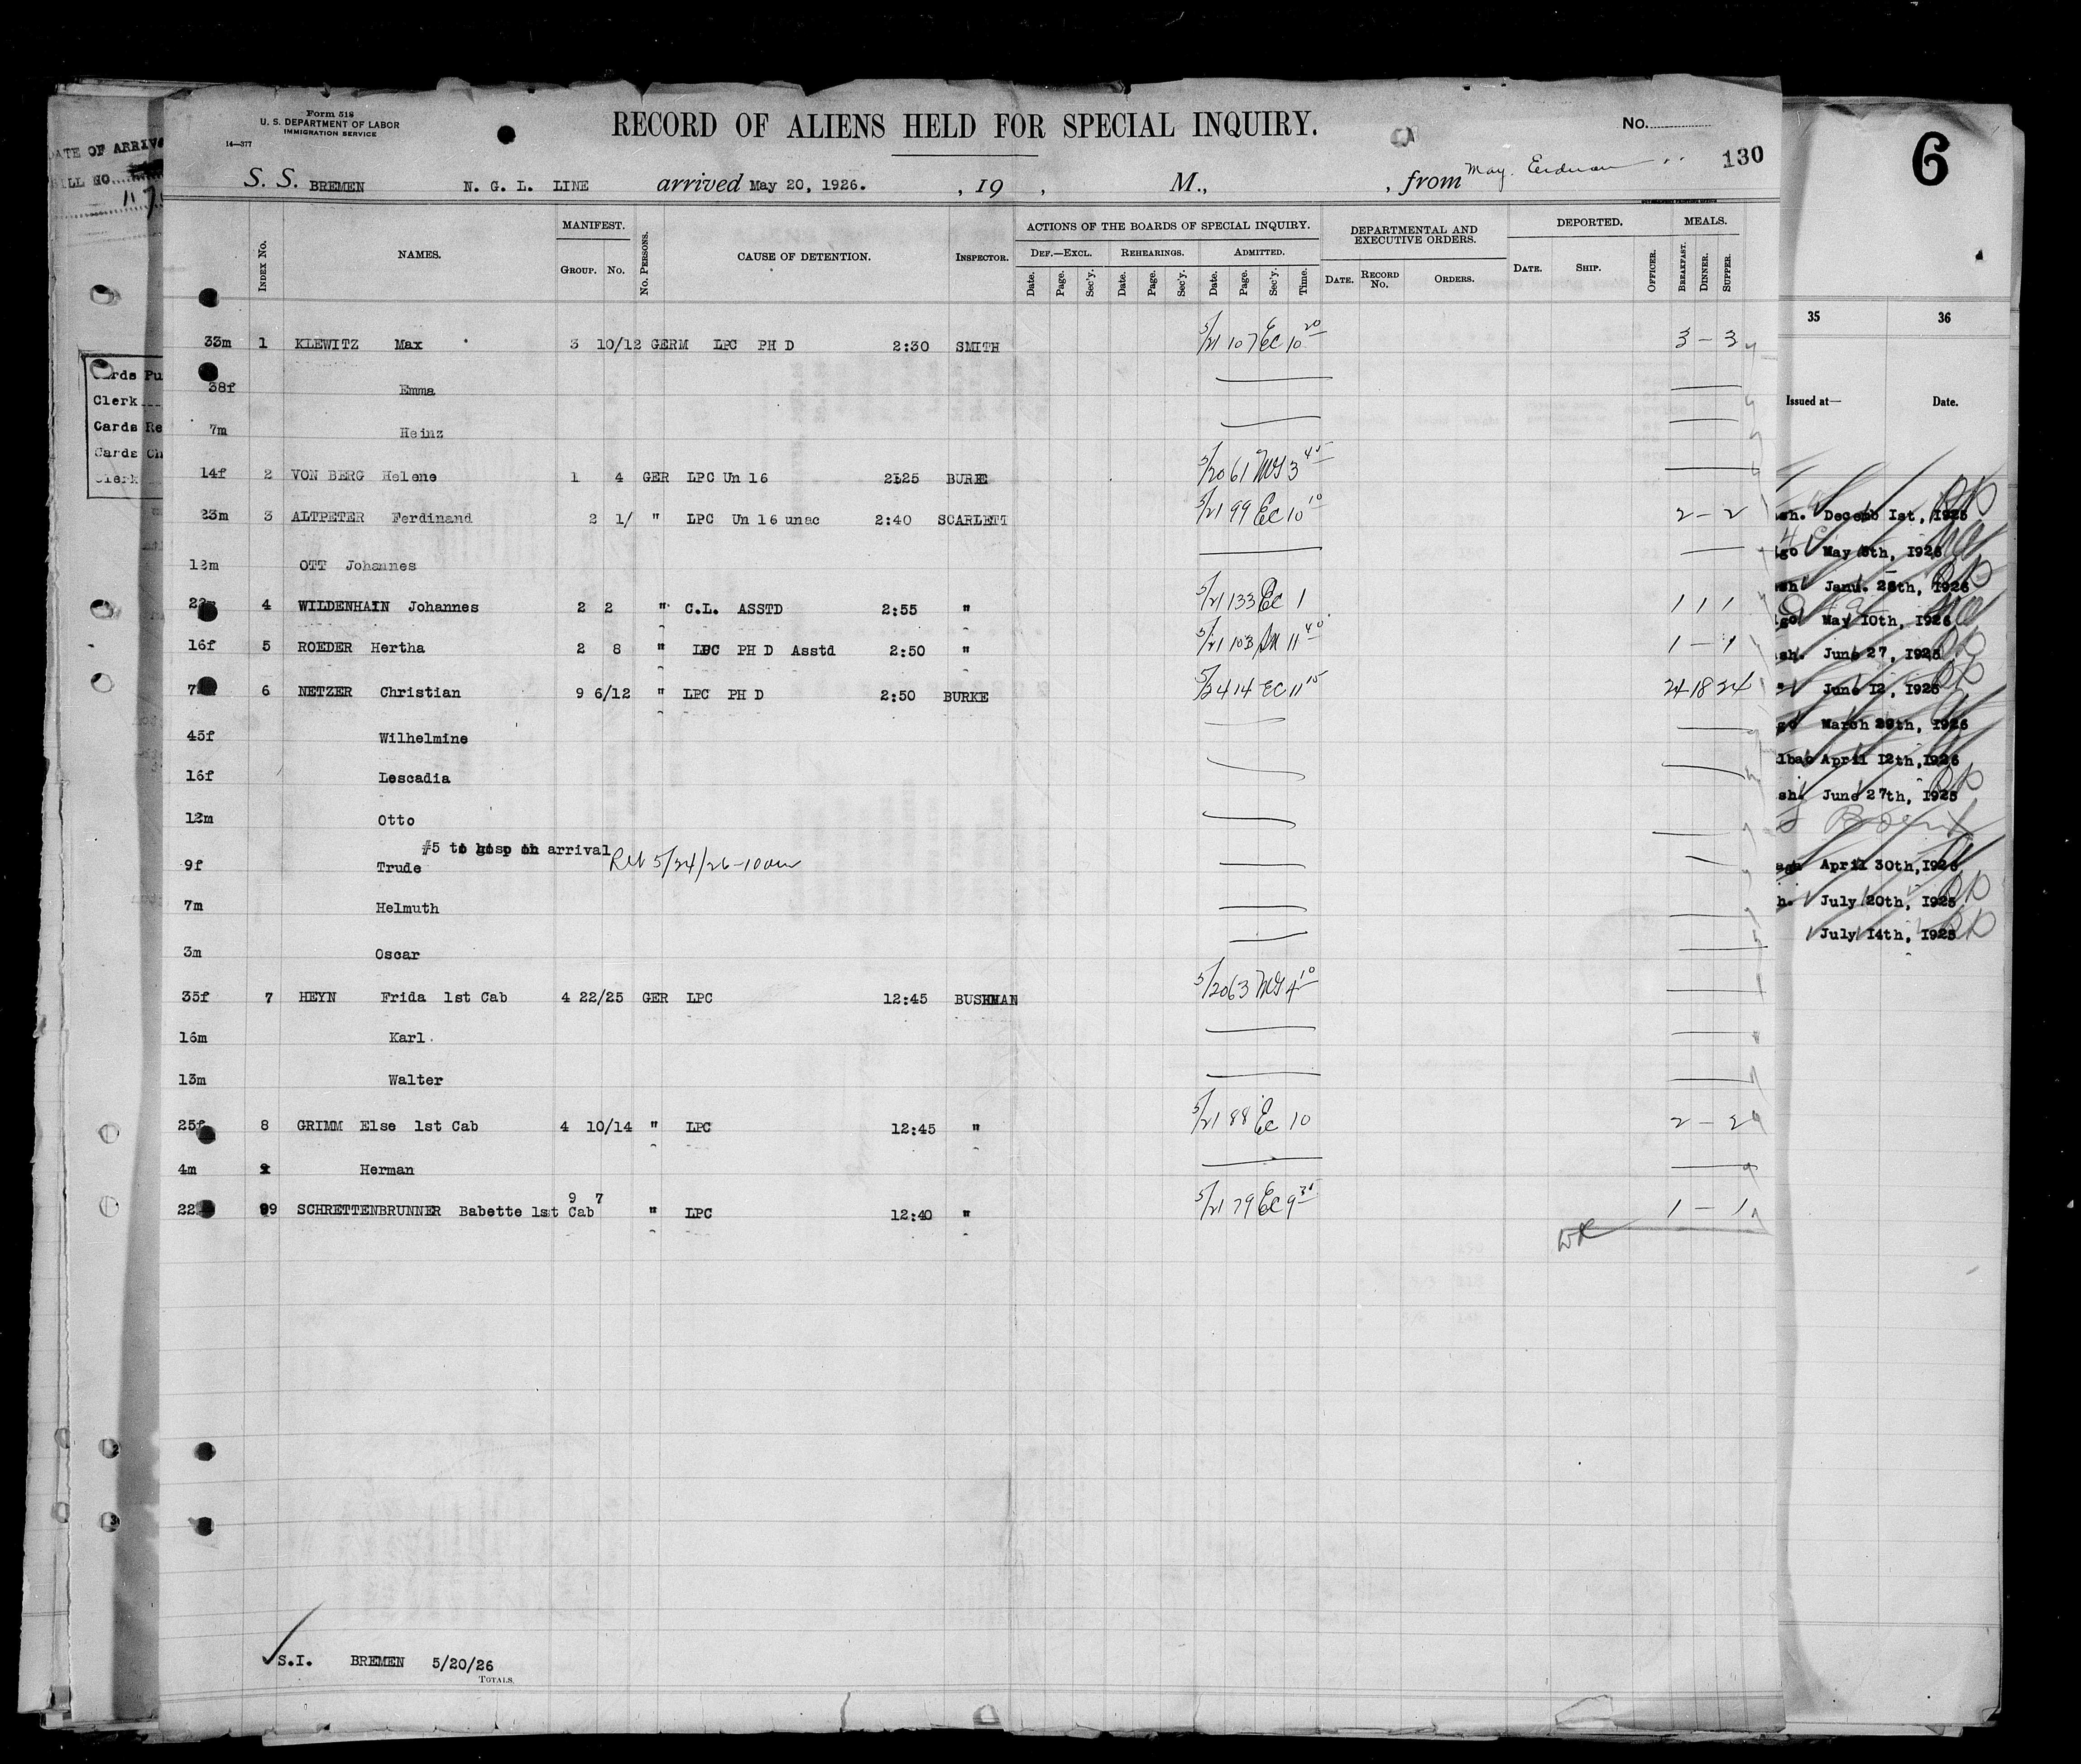 Form 518
U. S. DEPARTMENT OF LABOR
IMMIGRATION SERVICE
14—377
RECORD OF ALIENS HELD FOR SPECIAL INQUIRY.
No.
130
6
DATE OF ARRIV
S. S. BREMEN N. G. L. LINE arrived May 20, 1926. , 19 , M., , from May. Eerdman
Index No. NAMES. MANIFEST. Group. No. No. Persons. CAUSE OF DETENTION. Inspector. ACTIONS OF THE BOARDS OF SPECIAL INQUIRY. Def.—Excl. Rehearings. Admitted. Date. Page. Sec'y. Date. Page. Sec'y. Date. Page. Sec'y. Time. DEPARTMENTAL AND EXECUTIVE ORDERS. Date. Record No. Orders. DEPORTED. Date. Ship. Officer. MEALS. Breakfast. Dinner. Supper.
33m 1 KLEWITZ Max 3 10/12 GERM LPC PH D 2:30 SMITH 5/21 107 EC 10 20 3 – 3
38f Emma
7m Heinz
14f 2 VON BERG Helene 1 4 GER LPC Un 16 2:25 BURKE 5/20 61 MG 3 45
23m 3 ALTPETER Ferdinand 2 1/ " LPC Un 16 unac 2:40 SCARLETT 5/21 99 EC 10 10 2 – 2
12m OTT Johannes
4 WILDENHAIN Johannes 2 2 " C.L. ASSTD 2:55 " 5/21 133 EC 1 1 1 1
16f 5 ROEDER Hertha 2 8 " LPC PH D Asstd 2:50 " 5/21 103 11 40 1 – 1
6 NETZER Christian 9 6/12 " LPC PH D 2:50 BURKE 5/24 14 EC 11 15 24 18 24
45f Wilhelmine
16f Lescadia
12m Otto
#5 to hosp on arrival
9f Trude Ret 5/24/26 – 10 am
7m Helmuth
3m Oscar
35f 7 HEYN Frida 1st Cab 4 22/25 GER LPC 12:45 BUSHMAN 5/20 63 MG 4 10
16m Karl
13m Walter
25f 8 GRIMM Else 1st Cab 4 10/14 " LPC 12:45 " 5/21 88 EC 10 2 – 2
4m Herman
9 7
22 9 SCHRETTENBRUNNER Babette 1st Cab " LPC 12:40 " 5/21 79 EC 9 30 1 – 1
S.I. BREMEN 5/20/26
Totals.
Cards Pu
Clerk
Cards Re
Cards Ch
Clerk
35 36
Issued at— Date.
sh. Decemb 1st, 1925
go May 5th, 1926
sh Janu. 28th, 1926
go May 10th, 1926
sh. June 27, 1925
" June 12, 1925
go March 29th, 1926
lbao April 12th, 1926
sh. June 27th, 1925
April 30th, 1926
h. July 20th, 1925
July 14th, 1925